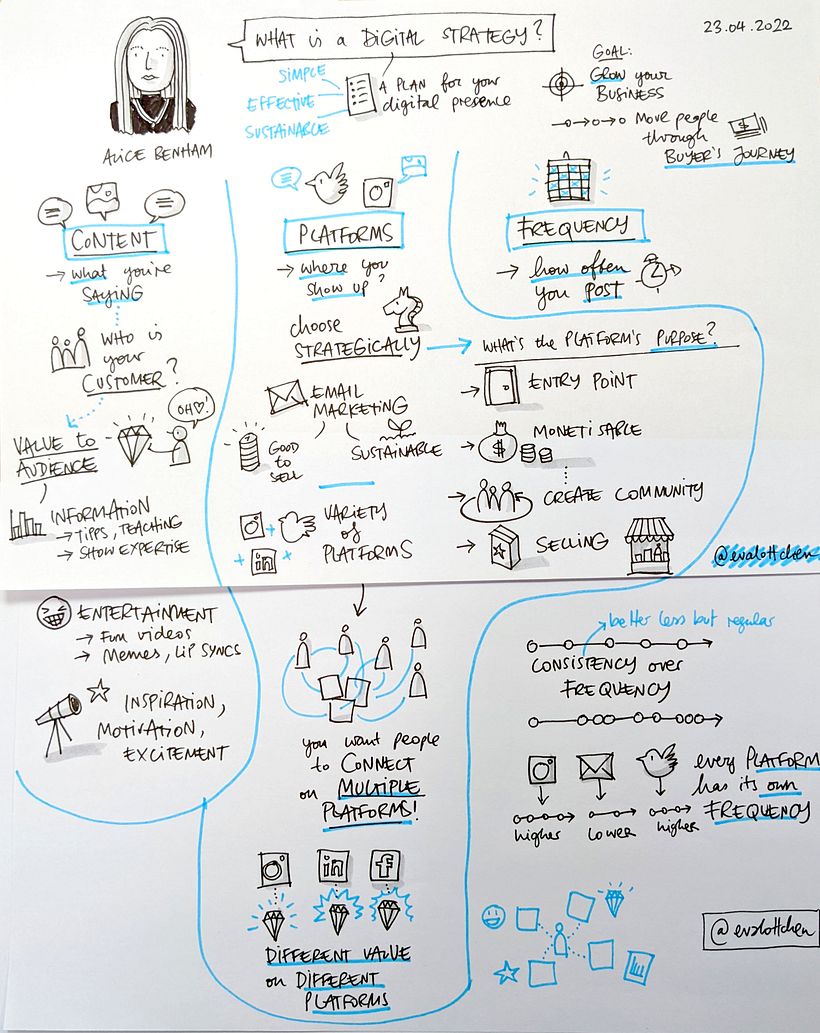 WHAT is a DIGITAL STRATEGY?
23.04.2022
SIMPLE
EFFECTIVE
SUSTAINABLE
A PLAN for your
digital presence
GOAL:
GROW your
BUSINESS
MOVE people
through
BUYER'S JOURNEY
ALICE BENHAM
CONTENT
→ what you're
SAYING
WHO is
your
CUSTOMER?
OH♡!
VALUE to
AUDIENCE
INFORMATION
→ TIPPS, TEACHING
→ SHOW EXPERTISE
ENTERTAINMENT
→ Fun videos
→ Memes, LIP SYNCS
INSPIRATION,
MOTIVATION,
EXCITEMENT
PLATFORMS
→ where you
show up?
choose
STRATEGICALLY
EMAIL
MARKETING
GOOD
to
SELL
SUSTAINABLE
VARIETY
of
PLATFORMS
+
in
+
+
you want people
to CONNECT
on MULTIPLE
PLATFORMS!
in
f
DIFFERENT VALUE
on DIFFERENT
PLATFORMS
FREQUENCY
→ how often
you POST
WHAT'S the PLATFORM'S PURPOSE?
→ ENTRY POINT
→ MONETISABLE
$
→ CREATE COMMUNITY
→ SELLING
@evalottchen
better less but regular
CONSISTENCY over
FREQUENCY
every PLATFORM
has its own
FREQUENCY
higher
lower
higher
@evalottchen